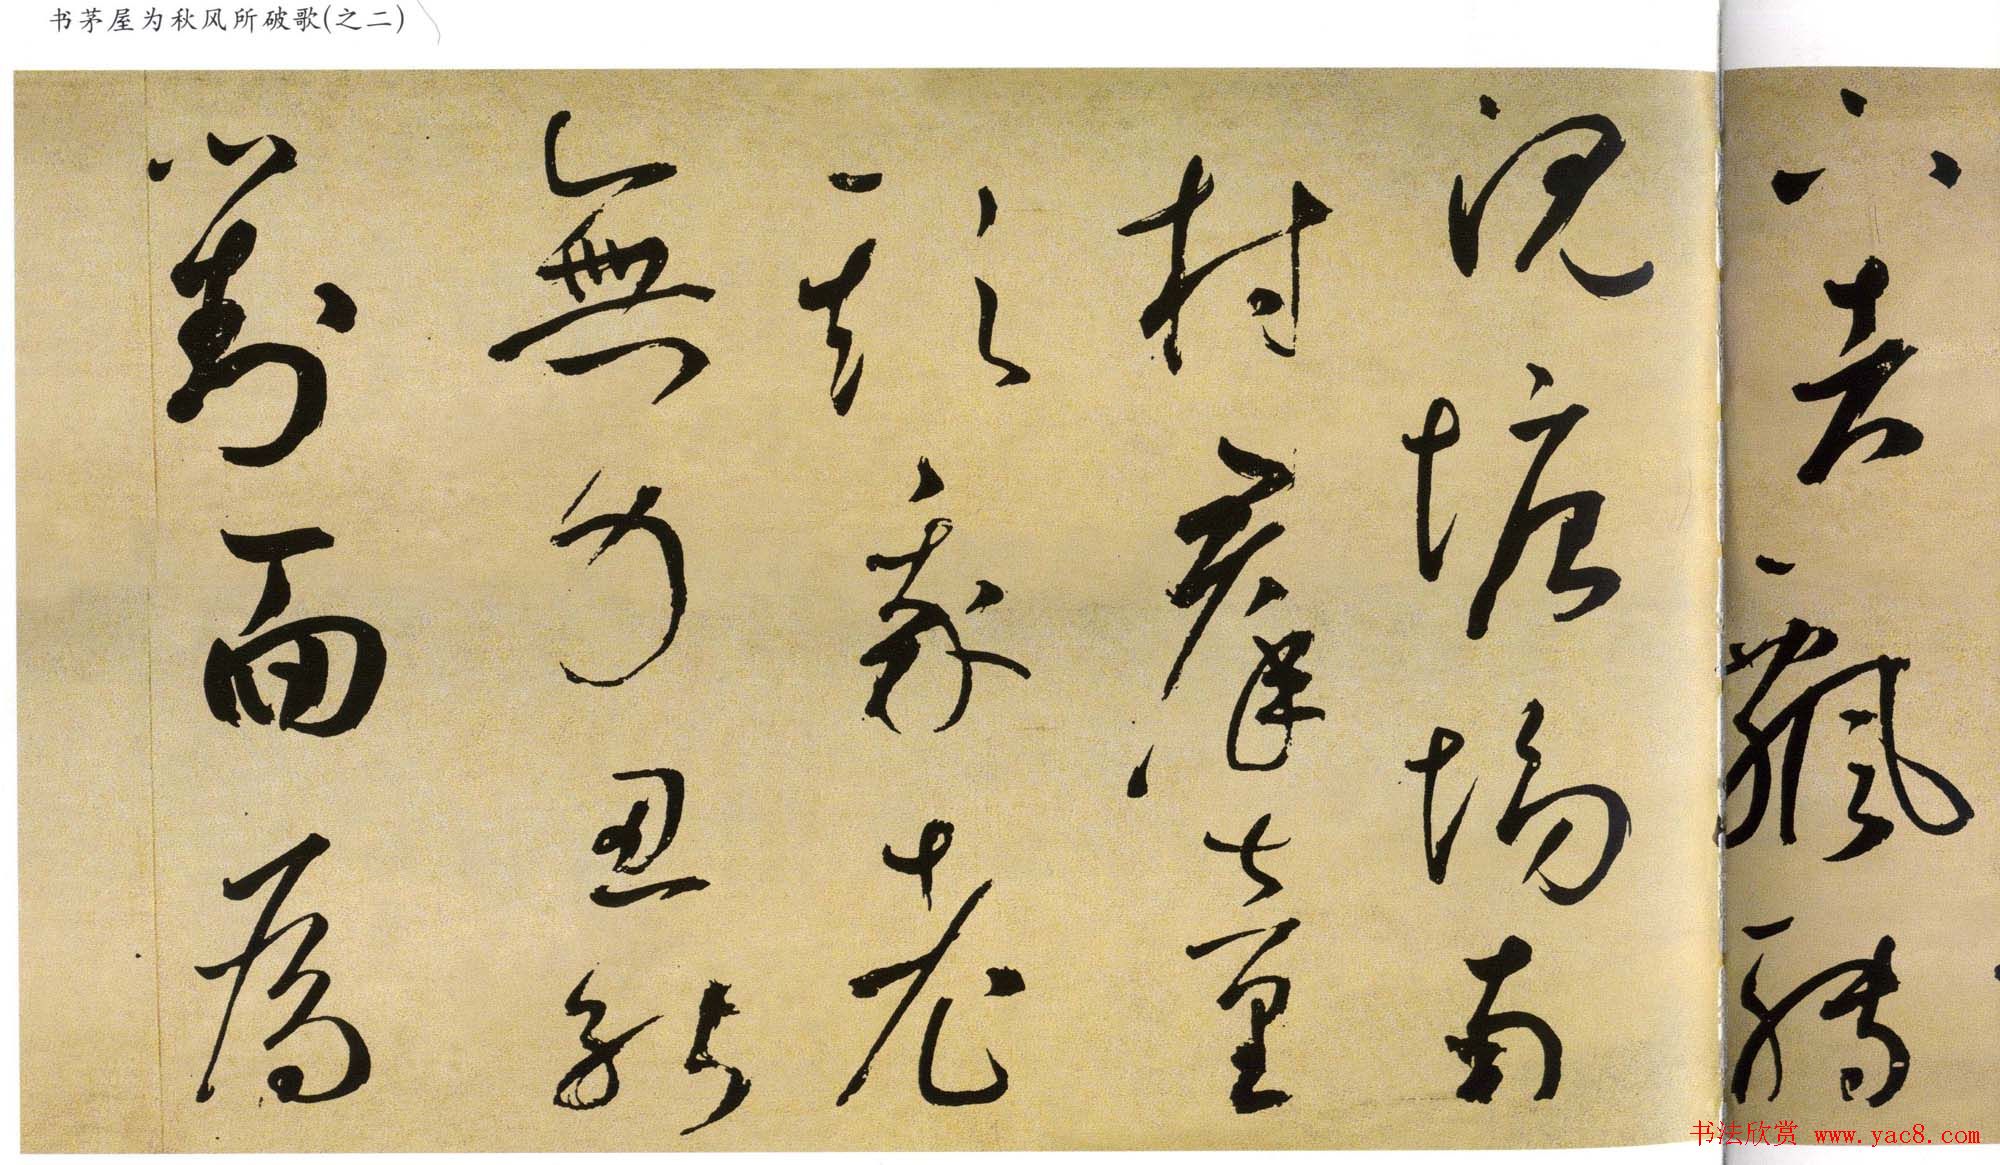 书茅屋为秋风所破歌(之二)
下者飄轉
沉塘坳南
村羣童
欺我老
無力忍能
對面為
书法欣赏 www.yac8.com